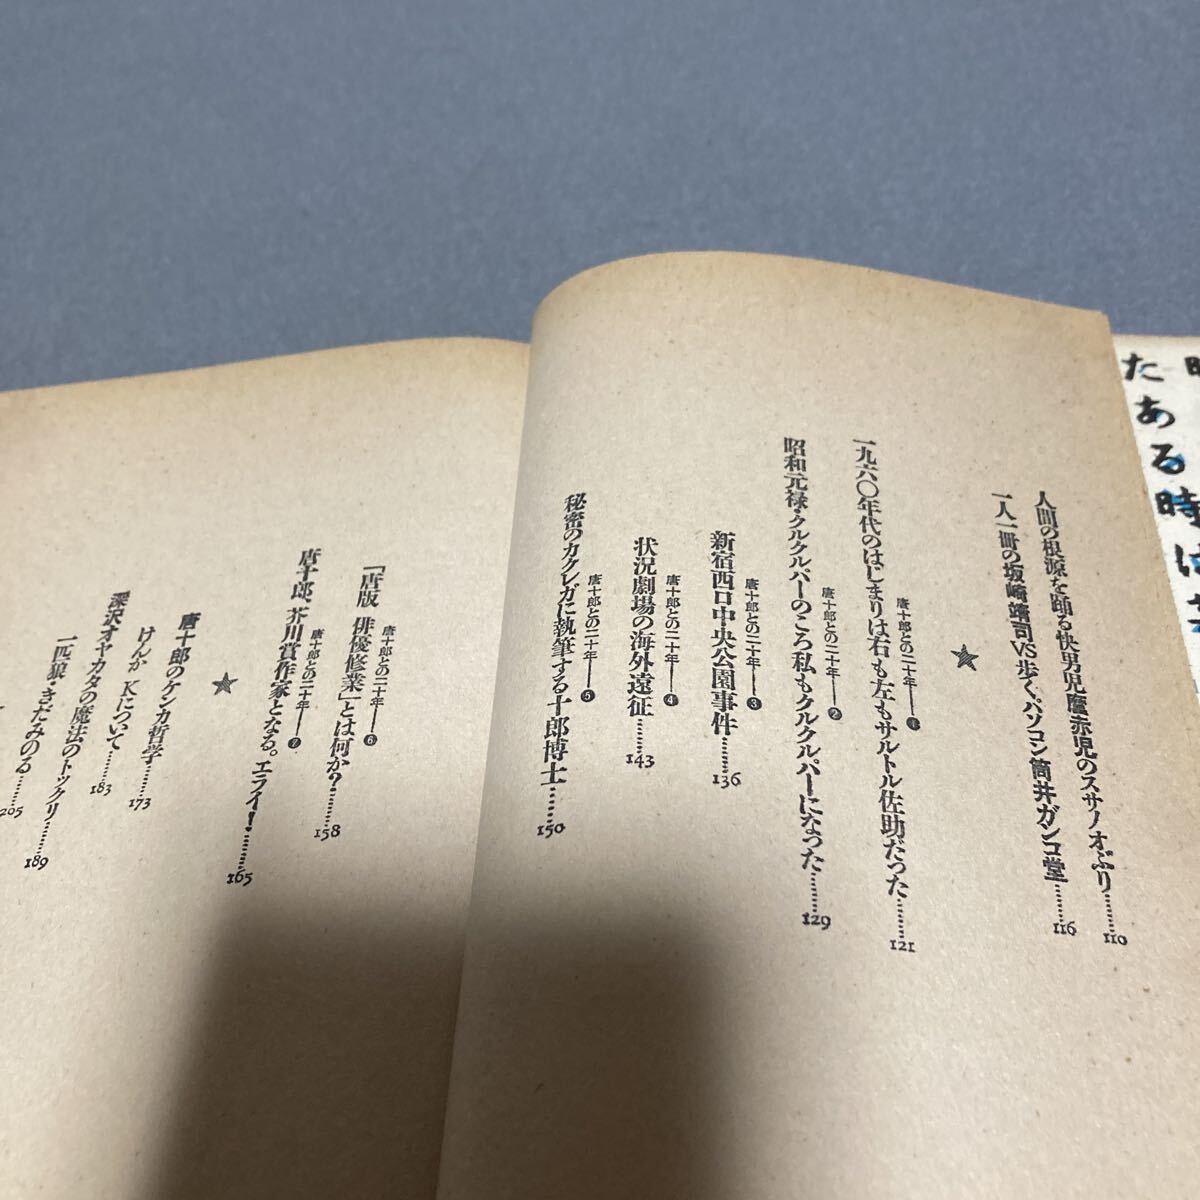 たある時は
人間の根源を踊る快男児麿赤児のスサノオぶり………110
一人一冊の坂崎靖司VS歩くパソコン筒井ガンコ堂………116
★
唐十郎との二十年——❶
一九六〇年代のはじまりは右も左もサルトル佐助だった………121
唐十郎との二十年——❷
昭和元禄・クルクルパーのころ私もクルクルパーになった………129
唐十郎との二十年——❸
新宿西口中央公園事件………136
唐十郎との二十年——❹
状況劇場の海外遠征………143
唐十郎との二十年——❺
秘密のカクレガに執筆する十郎博士………150
唐十郎との二十年——❻
「唐版 俳優修業」とは何か?………158
唐十郎との二十年——❼
唐十郎、芥川賞作家となる。エライ!………165
★
唐十郎のケンカ哲学
けんか Kについて………173
深沢オヤカタの魔法のトックリ………183
一匹狼・きだみのる………189
205